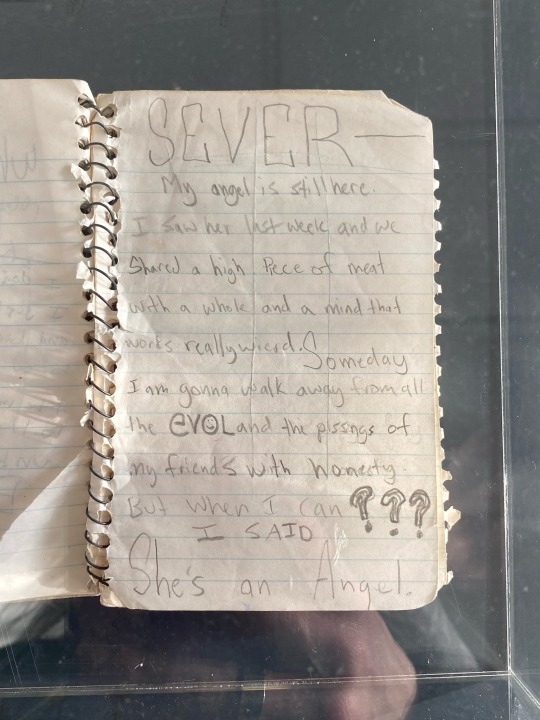 SEVER—
My angel is still here.
I saw her last week and we
Shared a high Piece of meat
with a whole and a mind that
works really wierd. Someday
I am gonna walk away from all
the evol and the pissngs of
my friends with homesty
But when I can ???
I SAID
She's an Angel.